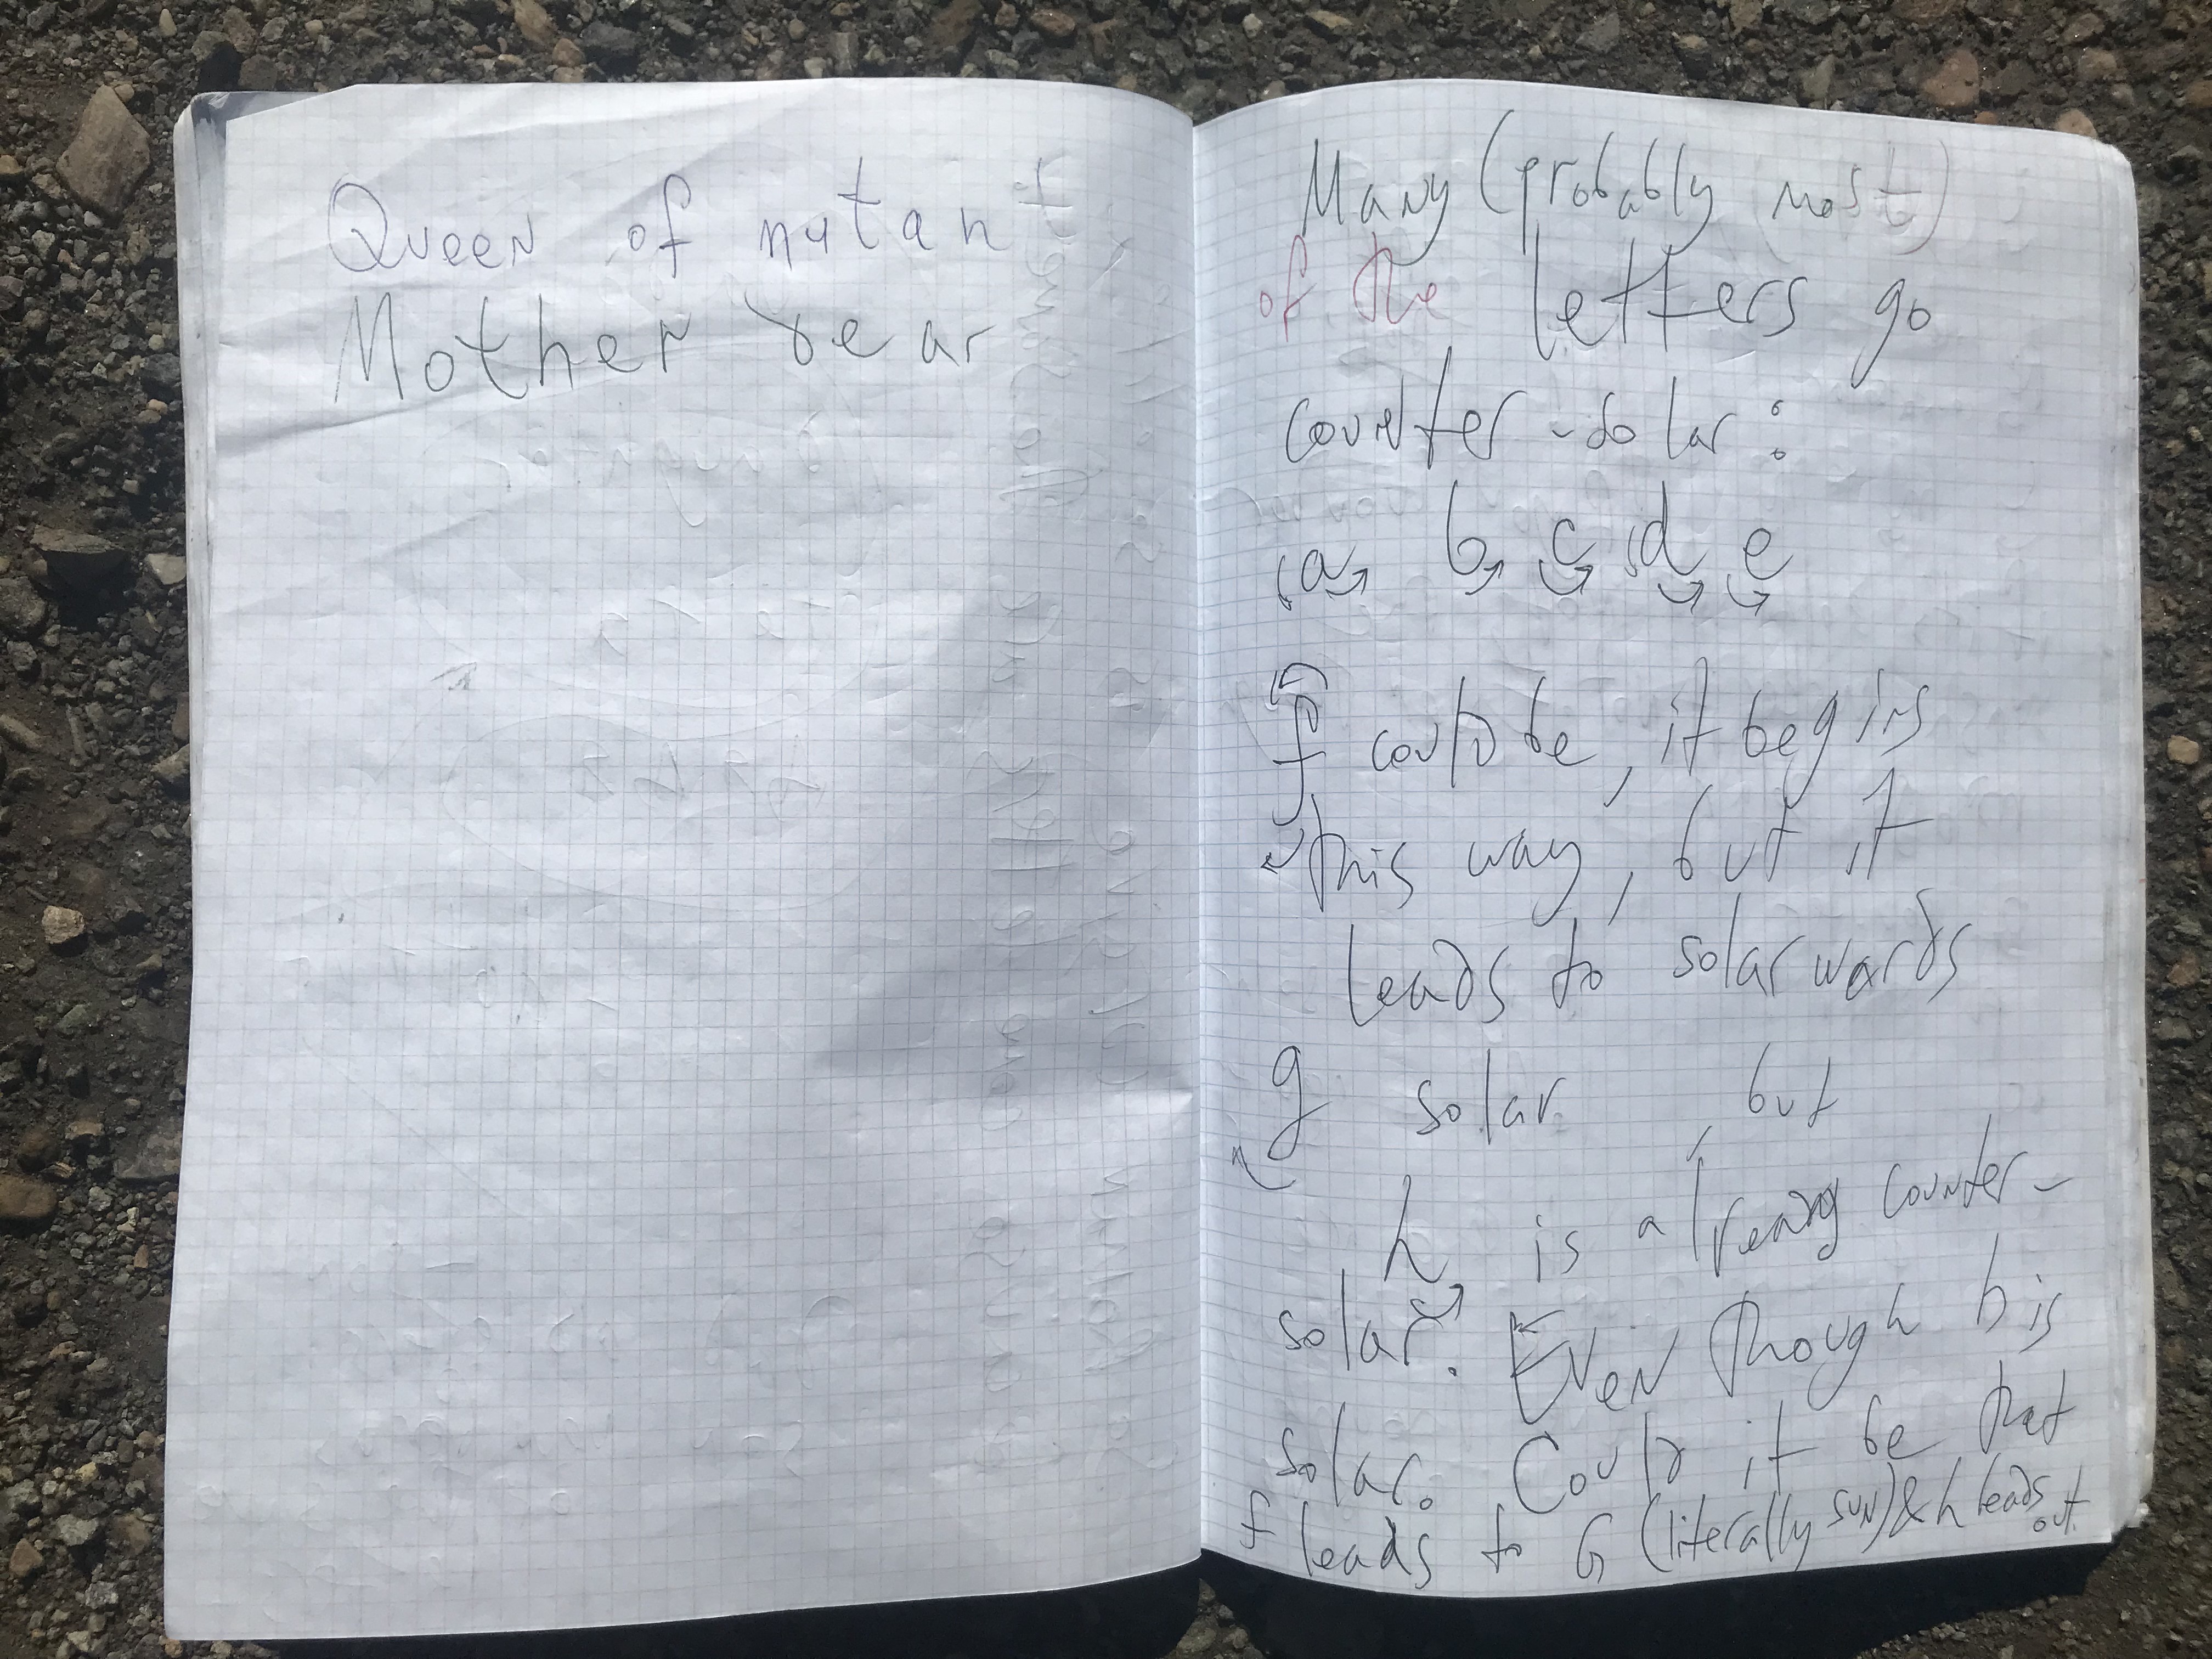 Queen of mutant
Mother gear
Many (probably most)
of the letters go
counter-solar:
a b c d e
f could be, it begins
this way, but it
leads to solarwards
g solar but
h is already counter-
solar. Even though b is
solar. Could it be that
f leads to G (literally sun) & h leads
out